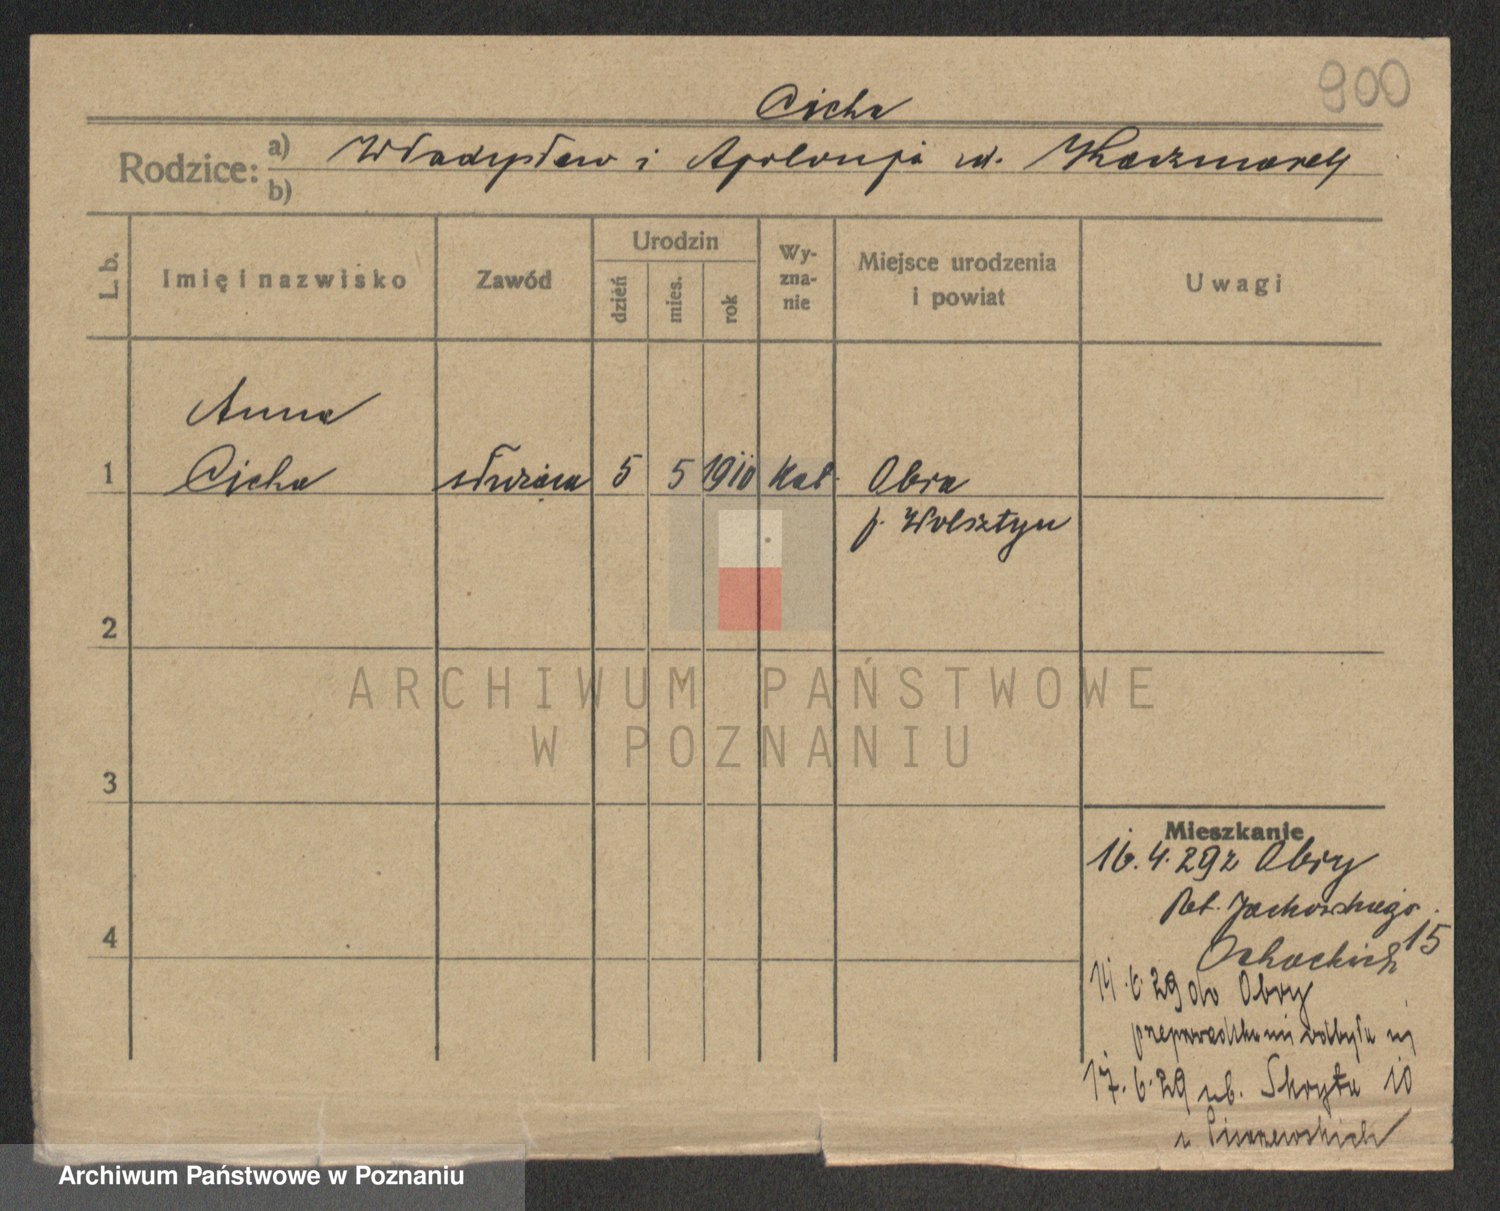 900
Cicha
Rodzice: a) Władysław i Apolonja ur. Kaczmarek
b)
L. b. Imię i nazwisko Zawód Urodzin dzień mies. rok Wy-zna-nie Miejsce urodzenia i powiat Uwagi
Anna
1 Cicha służąca 5 5 1910 kat. Obra
p. Wolsztyn
2
ARCHIWUM PAŃSTWOWE
W POZNANIU
3
Mieszkanie
16.4.29 z Obry
Jackowskiego
15
4
14.6.29 do Obry
17.6.29 ub. Skryta 10
Archiwum Państwowe w Poznaniu